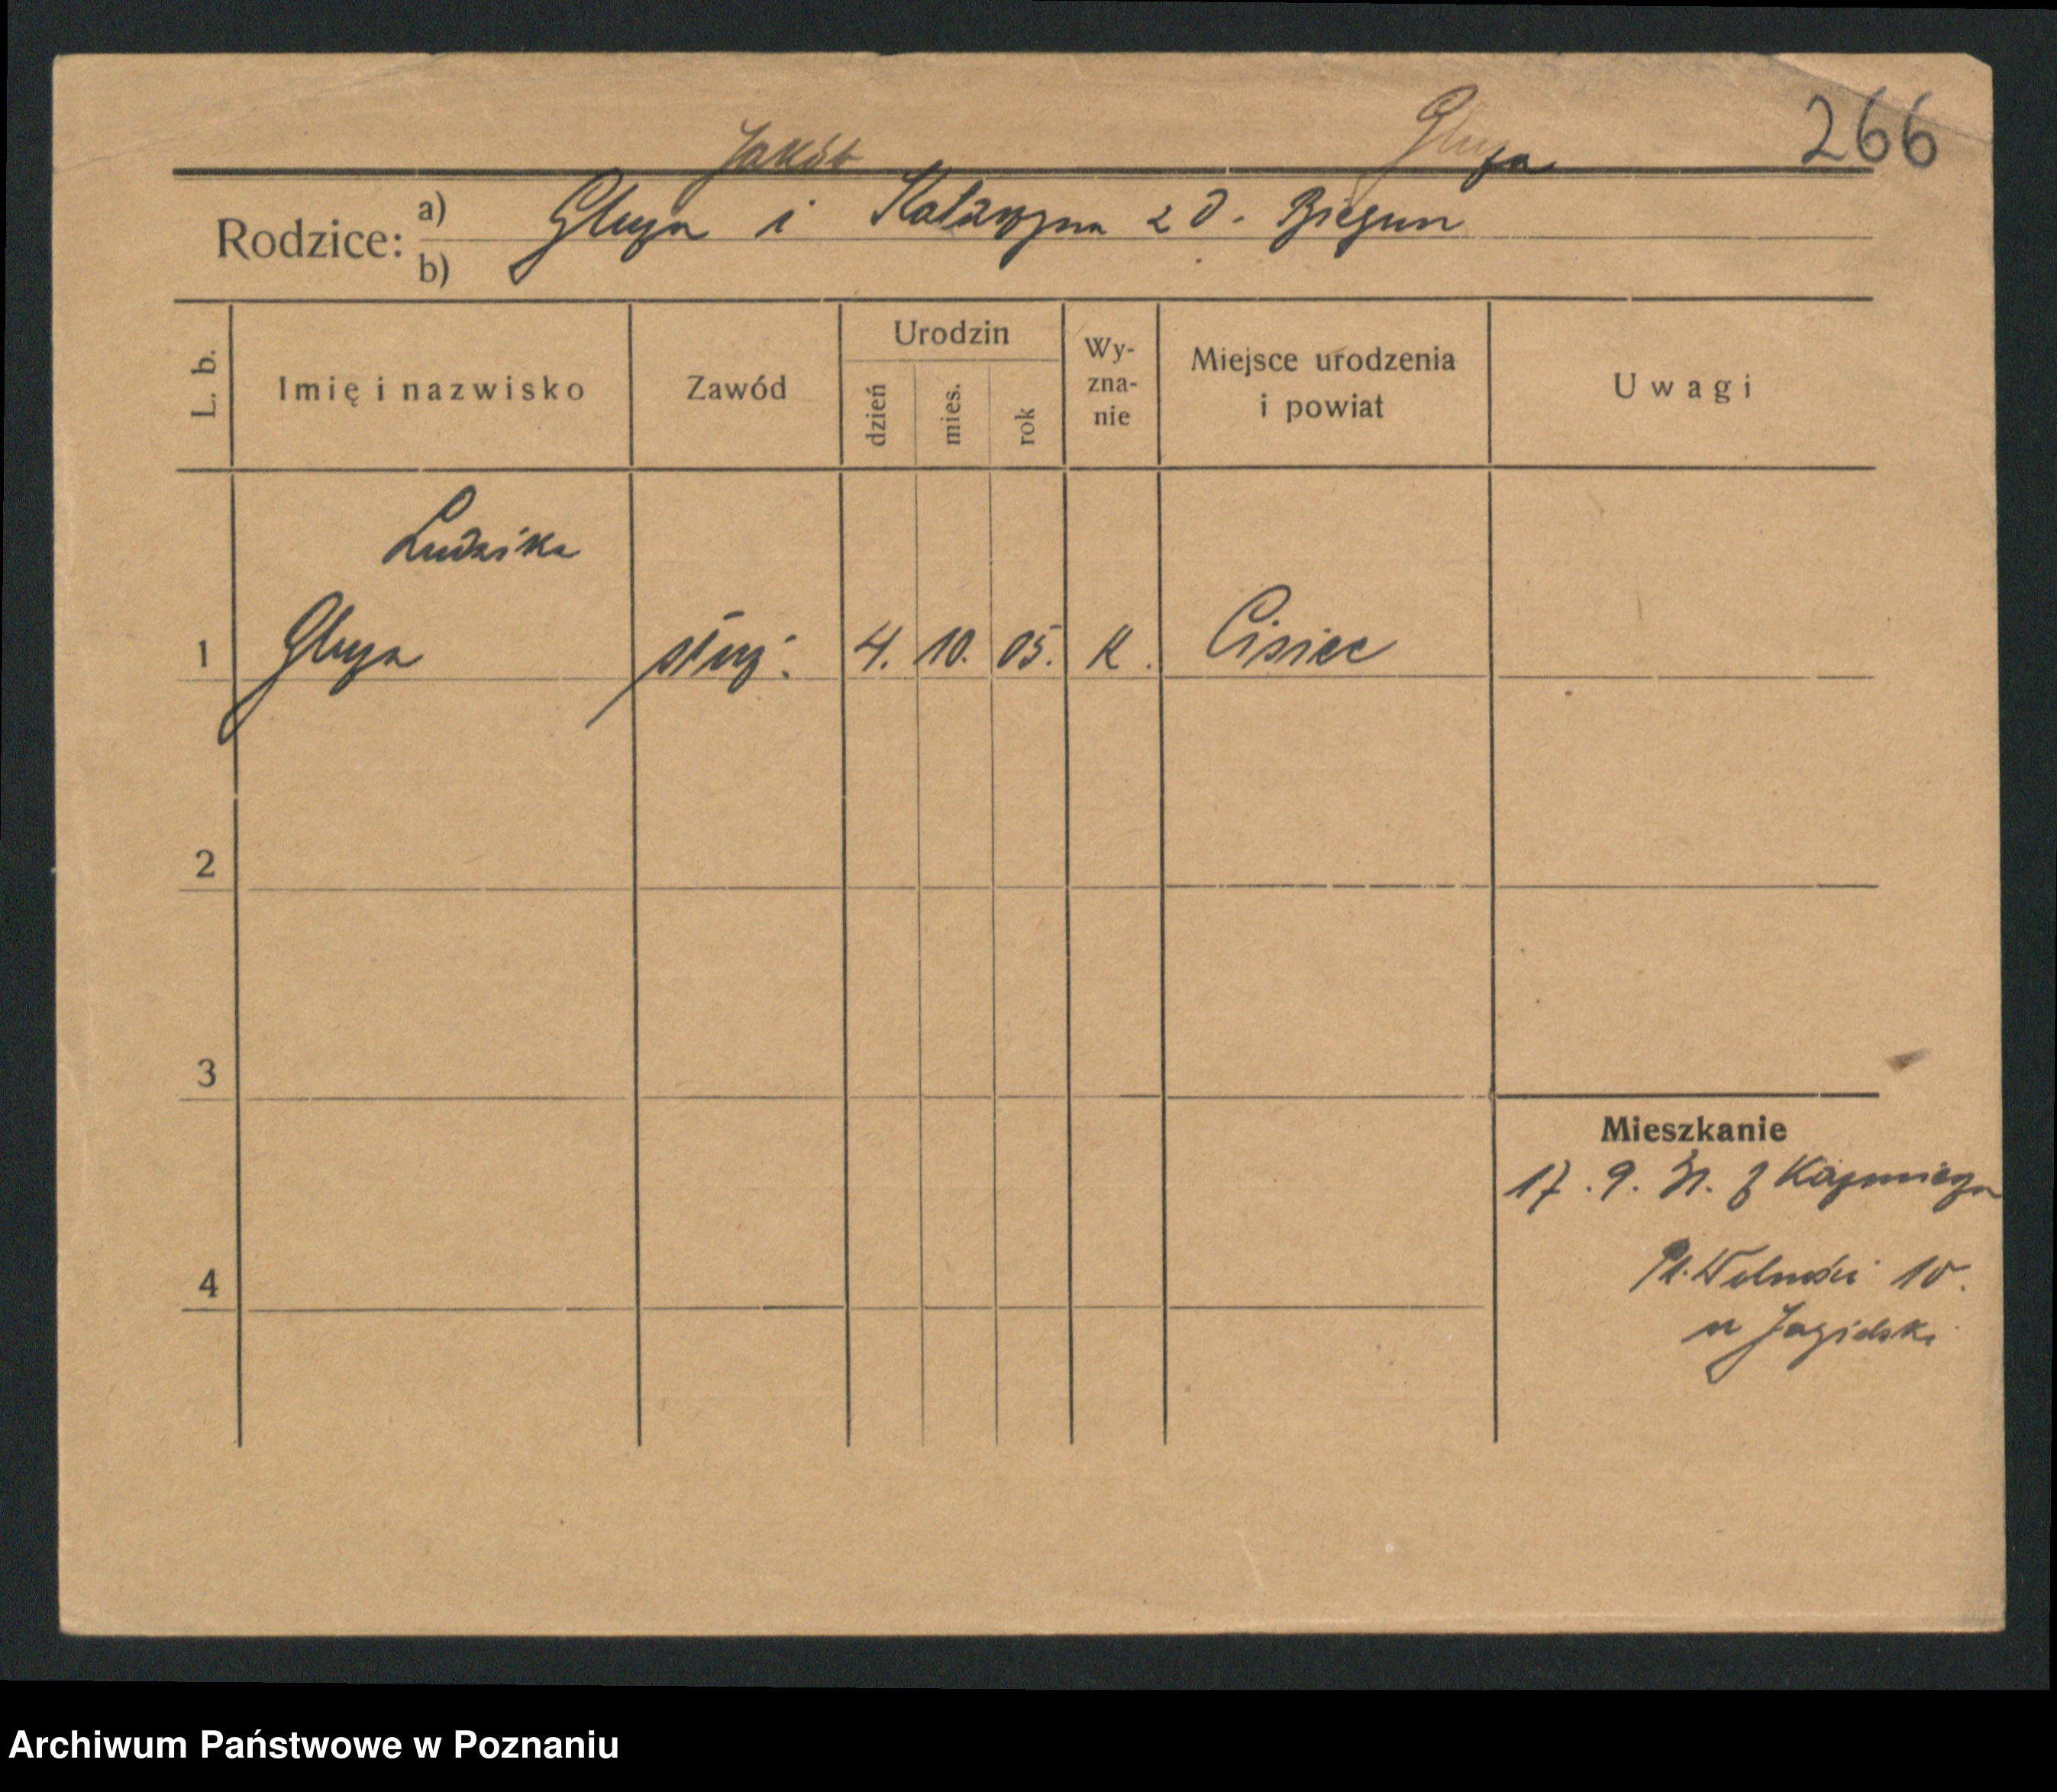 266
Jakób Gluza
Rodzice: a) Gluza i Katarzyna z d. Biegun
b)
L. b. Imię i nazwisko Zawód Urodzin dzień mies. rok Wy-zna-nie Miejsce urodzenia i powiat Uwagi
Ludwika
1 Gluza służ. 4. 10. 05. K. Cisiec
2
3
Mieszkanie
17. 9. 31. z
Pl. Wolności 10.
4
u Jagielski
Archiwum Państwowe w Poznaniu